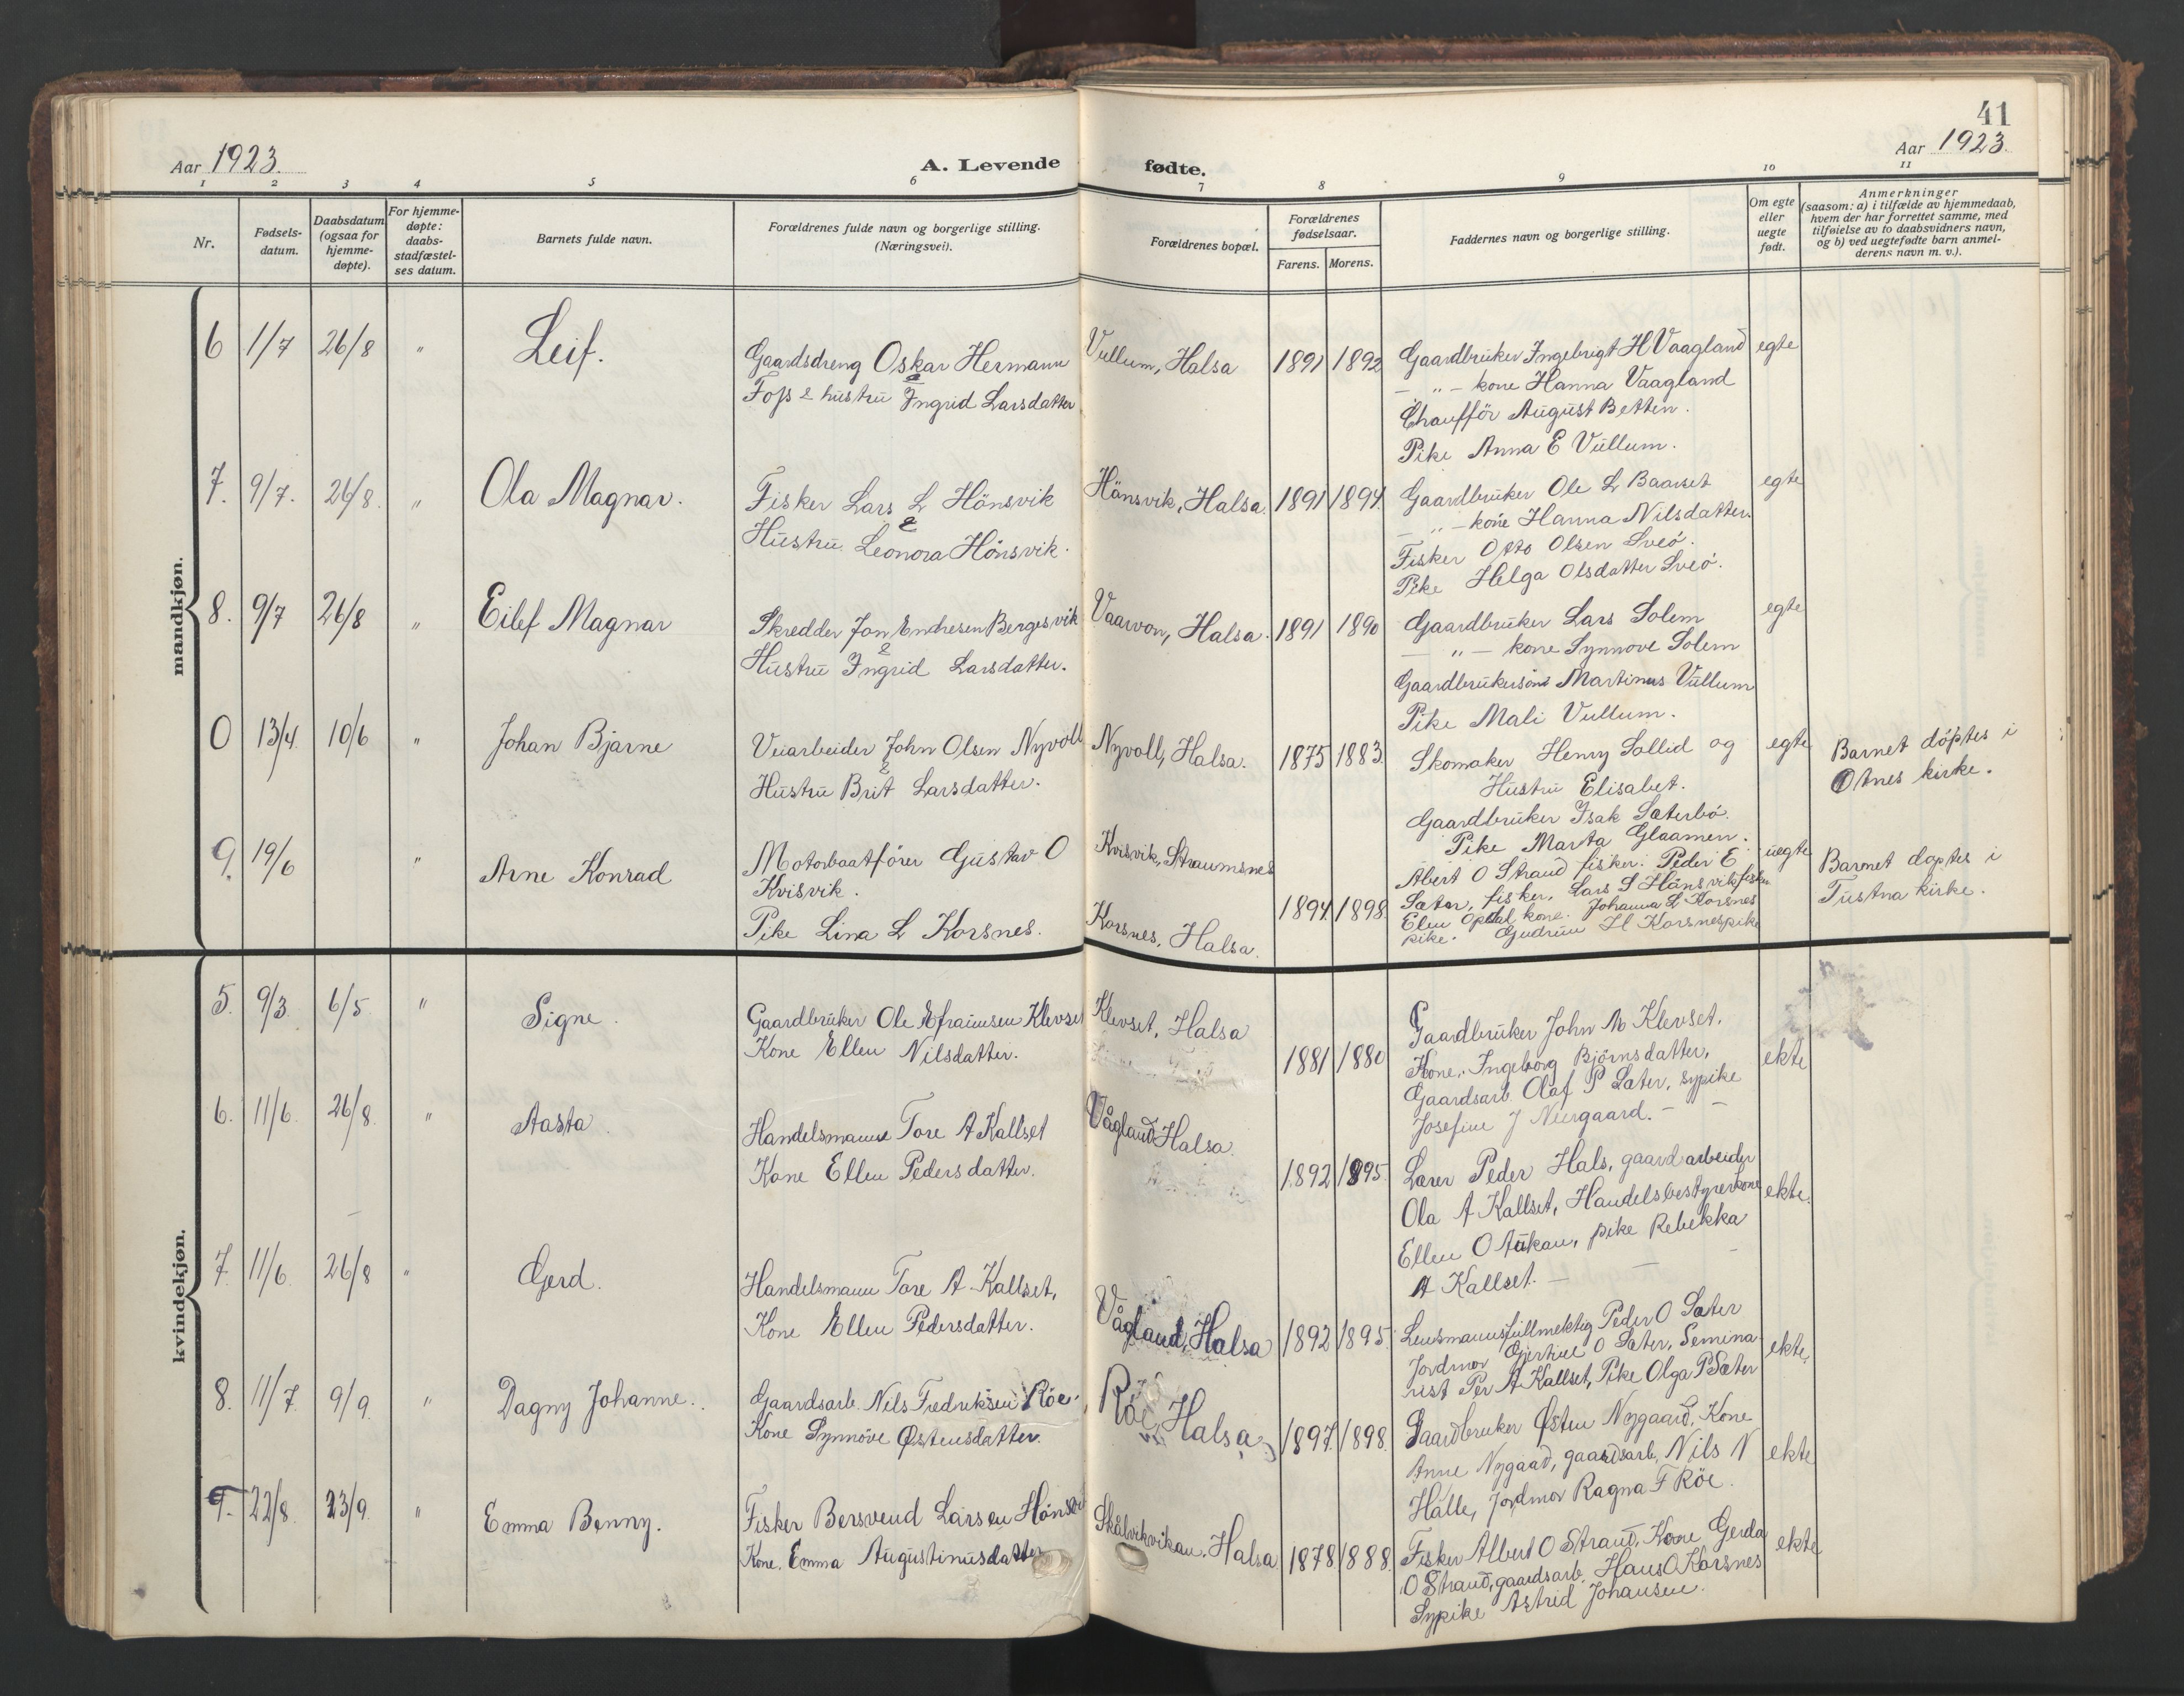 41
Aar 1923.
A. Levende fødte.
Aar 1923.
1 2 3 4 5 6 7 8 9 10 11
Nr.
Fødsels-
datum.
Daabsdatum
(ogsaa for
hjemme-
døpte).
For hjemme-
døpte:
daabs-
stadfæstel-
ses datum.
Barnets fulde navn.
Forældrenes fulde navn og borgerlige stilling.
(Næringsvei).
Forældrenes bopæl.
Forældrenes
fødselsaar.
Farens. Morens.
Faddernes navn og borgerlige stilling.
Om egte
eller
uegte
født.
Anmerkninger
(saasom: a) i tilfælde av hjemmedaab,
hvem der har forrettet samme, med
tilføielse av to daabsvidners navn,
og b) ved uegtefødte barn anmel-
derens navn m. v.).
mandkjøn.
6 1/7 26/8 "
Leif.
Gaardsdreng Oskar Hermann
Foss & hustru Ingrid Larsdatter
Vullum, Halsa
1891 1892
Gaardbruker Ingebrigt H Vaagland
— " — kone Hanna Vaagland
Chauffør August Betten.
Pike Anna E Vullum.
egte
7. 9/7. 26/8. "
Ola Magnar.
Fisker Lars L Hönsvik
&
Hustru Leonora Hönsvik.
Hänsvik, Halsa.
1891 1894.
Gaardbruker Ole L Baarset
— " — kone Hanna Nilsdatter.
Fisker Otto Olsen Sveö.
Pike Helga Olsdatter Sveö.
egte
8. 9/7 26/8 "
Eilef Magnar
Skredder Jon Endresen Bergesvik
&
Hustru Ingrid Larsdatter.
Vaarvon, Halsa.
1891 1890
Gaardbruker Lars Solem
— " — kone Synnove Solem
Gaardbrukersön Martinus Vullum
Pike Mali Vullum.
egte
0 13/4 10/6 "
Johan Bjarne
Veiarbeider John Olsen Nyvoll
&
Hustru Brit Larsdatter.
Nyvoll, Halsa.
1875 1883.
Skomaker Henry Sollid og
Hustru Elisabet.
Gaardbruker Isak Sæterbö.
Pike Marta Glaamen.
egte
Barnet döptes i
Otnes kirke.
9. 19/6 "
Arne Konrad
Motorbaatförer Gustav O
Kvisvik.
Pike Lina L Korsnes.
Kvisvik, Straumsnes
Korsnes, Halsa.
1894 1898.
Albert O Strand fisker. Peder E
Sæter, fisker. Lars S Hänsvik fisker
Elen Opdal kone. Johanna L Korsnes
pike. Gudrun H Korsnes pike
uegte
Barnet döptes i
Tustna kirke.
kvindekjøn.
5. 9/3 6/5 "
Signe.
Gaardbruker Ole Efraimsen Klevset
Kone Ellen Nilsdatter.
Klevset, Halsa
1881 1880
Gaardbruker John M Klevset.
Kone. Ingeborg Björnsdatter,
Gaardsarb. Olaf P Sæter, sypike
Josefine J Neergaard. — —
ekte
6. 11/6. 26/8. "
Aasta.
Handelsmann Tore A Kallset
Kone Ellen Pedersdatter.
Vågland Halsa.
1892 1895.
Lærer Peder Hals, gaardarbeider
Ola A Kallset, Handelsbestyrerkone
Ellen O Aukan, pike Rebekka
A Kallset. —
ekte.
7. 11/6. 26/8 "
Gerd.
Handelsmann Tore A Kallset,
Kone Ellen Pedersdatter.
Vågland, Halsa
1892 1895.
Lensmannsfullmektig Peder O Sæter
Jordmor Gjertine O Sæter, Semina-
rist Per A Kallset, Pike Olga P Sæter
ekte.
8. 11/7. 9/9. "
Dagny Johanne.
Gaardsarb. Nils Fredriksen Röe.
Kone Synnöve Østensdatter.
Röe, Halsa
1897. 1898.
Gaardbruker Østen Nygaard, Kone
Anne Nygaard, gaardsarb, Nils N
Halle, Jordmor Ragna F Röe.
ekte
9. 22/8. 23/9. "
Emma Benny.
Fisker Bersvend Larsen Hönsvik
Kone. Emma Augustinusdatter
Skålvikvikan. Halsa
1878 1888.
Fisker Albert O Strand, Kone Gerda
O Strand, gaardsarb. Hans O Korsnes
Sypike Astrid Johansen.
ekte